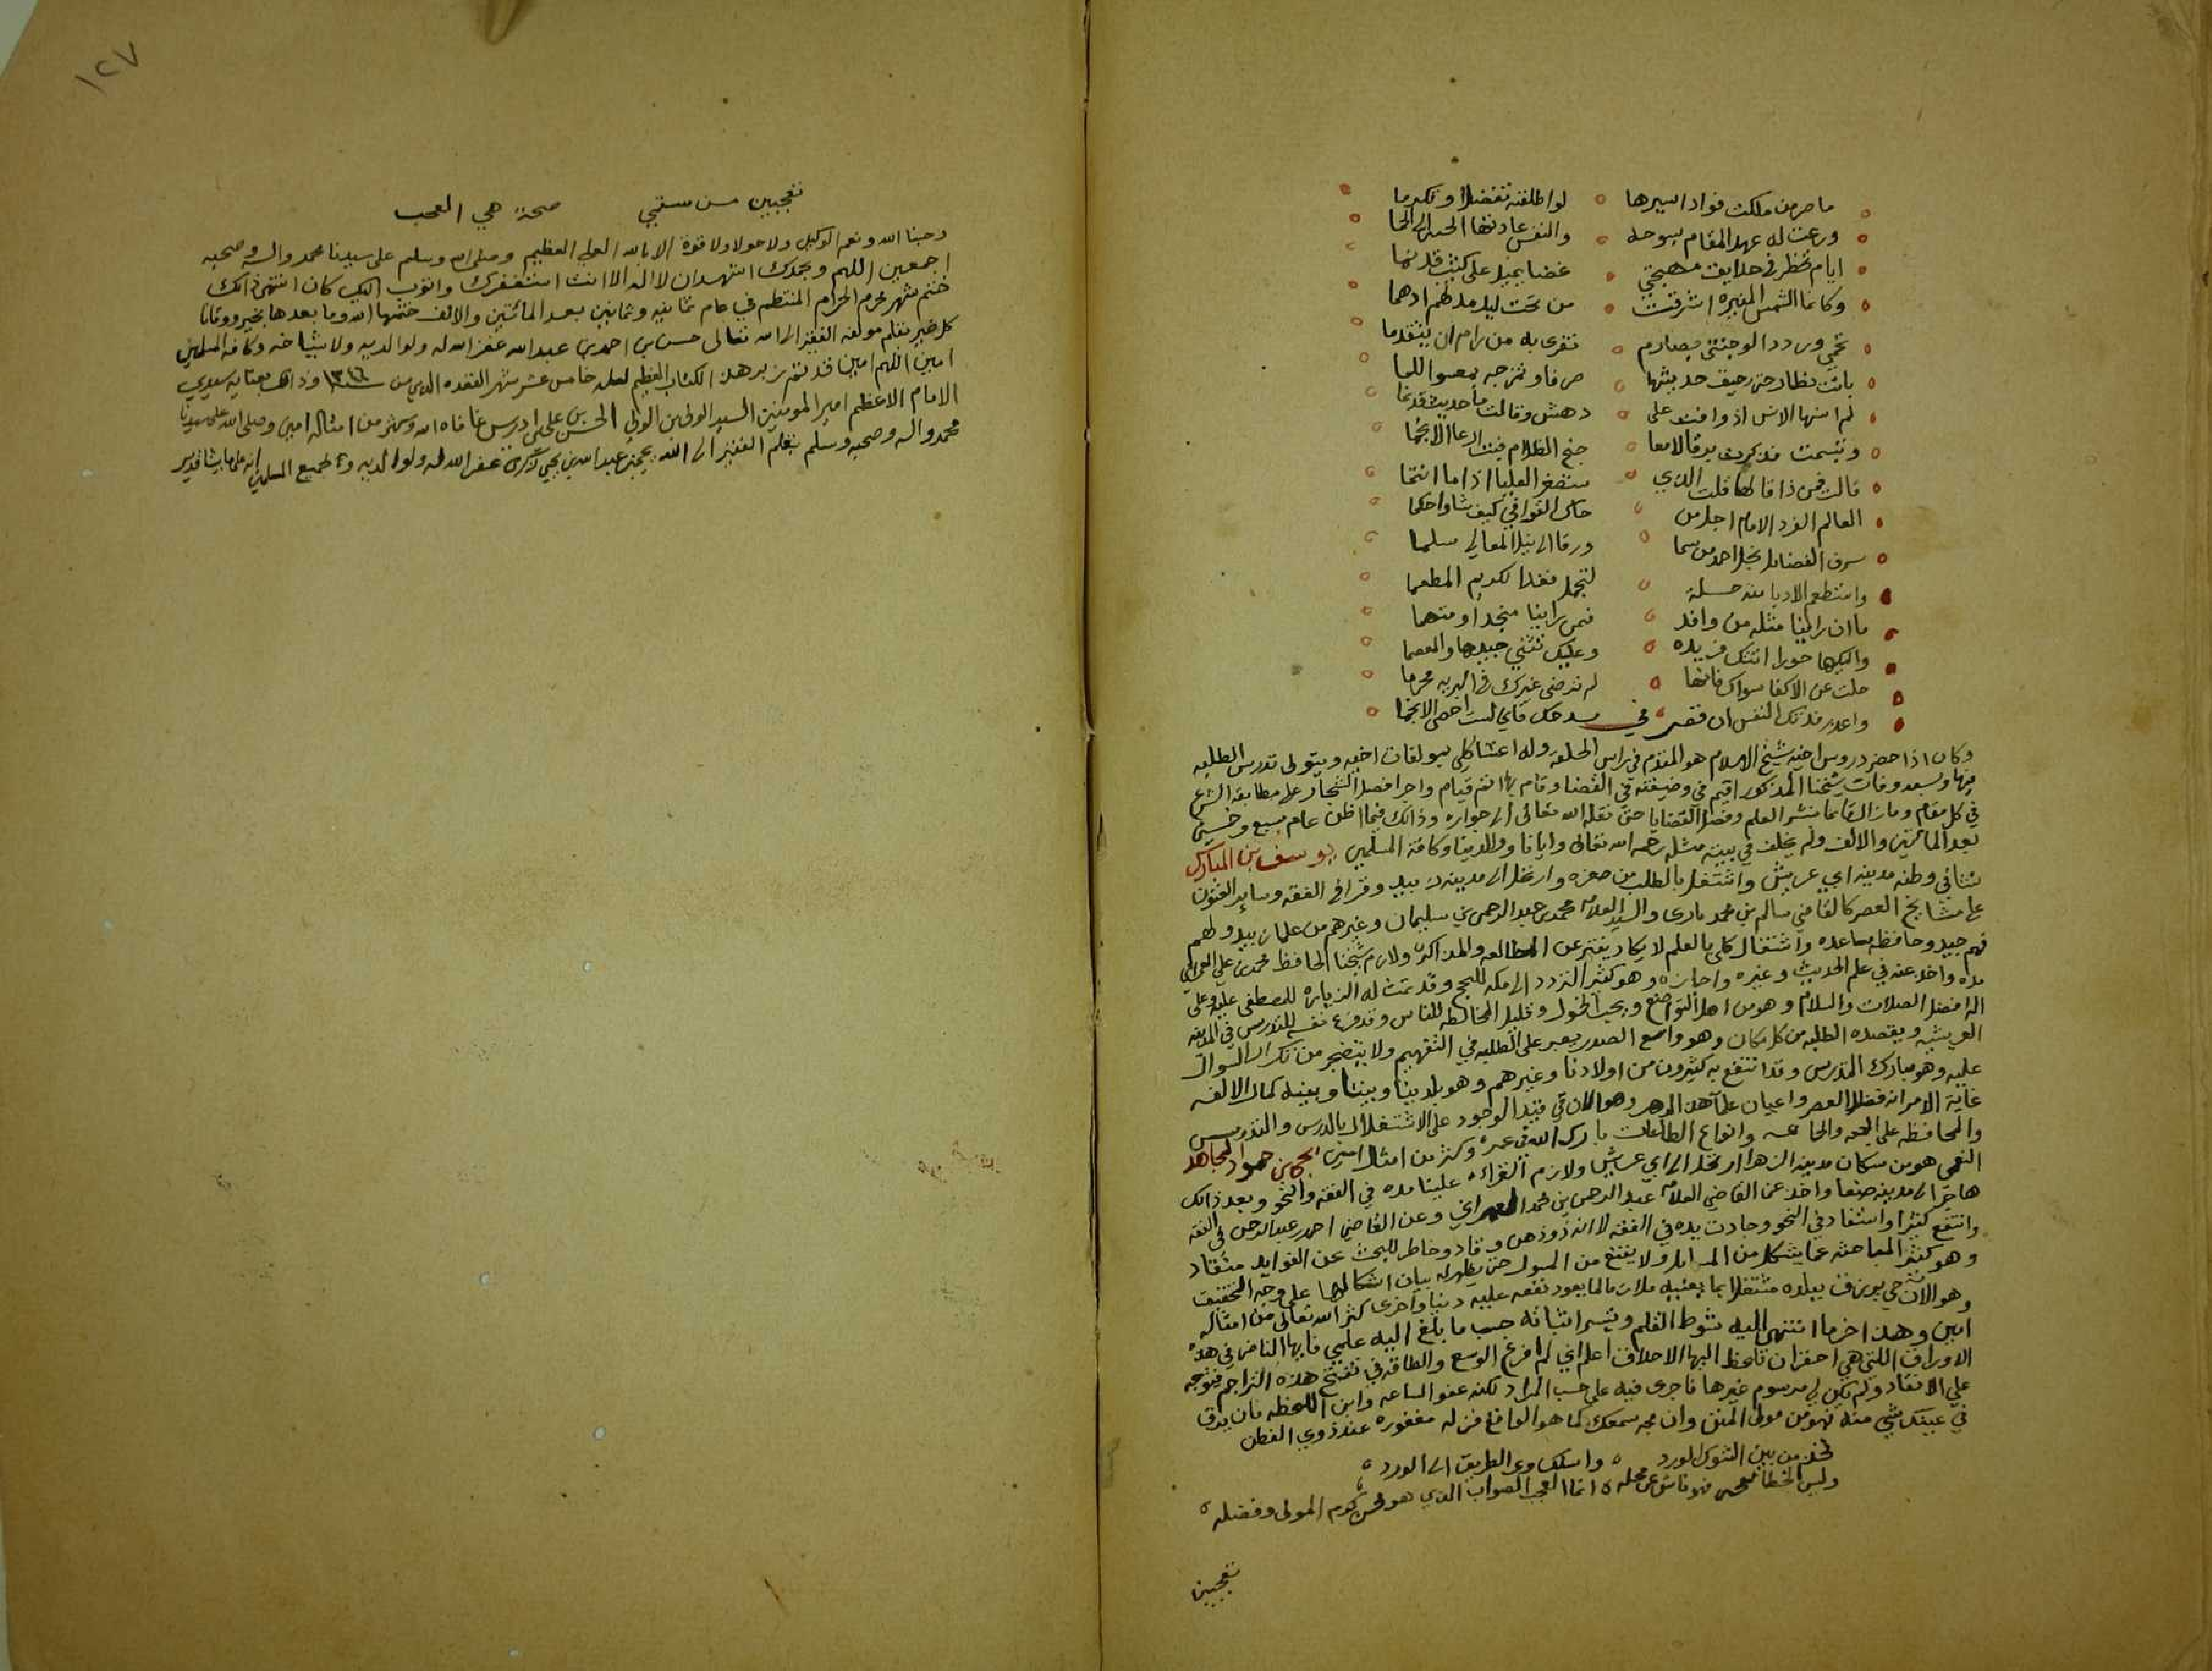 ما ضر من ملكت فواد اسيرها لو اطلقته تفضلا وتكرما
ورعت له عهد المقام بسوحه والنفس عادتها الحنين الى الحما
ايام تخطر في حدايق مهجتي غصنا يميد على كثيب قد نما
وكانما الشمس المنيره اشرقت من تحت ليل مدلهم ادهما
تحمي ورود الوجنتي بصارم تفري به من رام ان يتقدما
باتت تطارحني رحيق حديثها صرفا وتمزجه بمعسول اللما
لم انسها الانس اذ وافت على دهش وقالت ما حديث قد نما
وتبسمت فذكرت برقا لامعا جنح الظلام فبت ارعا الانجما
قالت فمن ذا قالها قلت الذي ستصغر العليا اذا ما انتما
العالم الفرد الامام اجل من حاك القوافي كيف شا واحكما
شرف الفضايل نجل احمد من سما ورقا الى نيل المعالي سلما
واستطعم الادبا منه حسلة لتجمل فغدا لكريم المطعما
ما ان راينا مثله من وافد فمن راينا منجدا ومتهما
واليكها حورا اتتك فريده وعليك تثني جيدها والمعصما
جلت عن الاكفا سواك فانها لم ترضى غيرك في البريه محرما
واعذر فدتك النفس ان قصرت في مدحك فاني لست احصى الانجما
وكان اذا حضر دروس اخيه شيخ الاسلام هو المقدم في راس الحلقه وله اعتنا كلي بمولفات اخيه ويتولى تدريس الطلبه
فيها وبعد وفات شيخنا المذكور اقيم في وضيفته في القضا وقام بها اتم قيام واجرا فصل الشجار على مطابقة الشرع
في كل مقام وما زال قايما بنشر العلم وفصل القضايا حتى نقله الله تعالى الى جواره وذالك فيما اظن عام سبع وخمسين
بعد المائتين والالف ولم يخلف في بيته مثله رحمه الله تعالى وايانا ووالدينا وكافة المسلمين يوسف بن المبارك
نشا في وطنه مدينه ابي عريش واشتغل بالطلب من صغره وارتحل الى مدينه زبيد وقرا في الفقه وساير الفنون
على مشايخ العصر كالقاضي سالم بن محمد بادى والسيد العلامه محمد بن عبد الرحمن بن سليمان وغيرهم من علما زبيد ولهم
فهم جيد وحافظه مساعده واشتغال كلي بالعلم لا يكاد يفتر عن المطالعه والمذاكره ولازم شيخنا الحافظ محمد بن علي العمراني
مده واخذ عنه في علم الحديث وغيره واجازه وهو كثير التردد الى مكه للحج وقد تمت له الزياره للمصطفى عليه وعلى
اله افضل الصلات والسلام وهو من اهل التواضع ويحب الخمول وقليل المخالطه للناس وقد فرغ نفسه للتدريس في المدينه
العريشيه ويقصده الطلبه من كل مكان وهو واسع الصدر يصبر على الطلبه في التفهيم ولا يتضجر من تكرار السوال
عليه وهو مبارك التدريس وقد انتفع به كثيرون من اولادنا وغيرهم وهو بلدينا وبيننا وبينه كمال الالفه
غاية الامر انه فضلا العصر واعيان علما هذا الدهر وهو الان في قيد الوجود على الاشتغال بالدرس والتدريس
والمحافظه على الجمعه والجماعه وانواع الطاعات بارك الله في عمره وكثر من امثاله امين يحيى بن حمود المجاهد
النعمى هو من سكان مدينه الزهرا ارتحل الى ابي عريش ولازم القراه علينا مده في الفقه والنحو وبعد ذالك
هاجر الى مدينه صنعا واخذ عن القاضي العلامه عبد الرحمن بن محمد العمراني وعن القاضي احمد بن عبد الرحمن في الفقه
وانتفع كثيرا واستفاد في النحو وجادت يده في الفقه لانه ذو ذهن وقاد وخاطر للبحث عن الفوايد منقاد
وهو كثير المباحثه عما يشكل من المسايل ولا يقنع من المسول حتى يظهر له بيان اشكالها على وجه التحقيق
وهو الان حي يرزق ببلده مشتغلا بما يعنيه ملازما لما يعود نفعه عليه دنيا واخرى كثر الله تعالى من امثاله
امين وهذا اخر ما انتهى اليه شوط القلم وتيسر اثباته حسب ما بلغ اليه علمي فايها الناضر في هذه
الاوراق اللتي هي احقر ان تلحظ اليها الاحداق اعلم اني لم افرغ الوسع والطاقه في تنقيح هذه التراجم فتوجه
علي الانتقاد ولم يكن لي مرسوم غيرها فاجرى فيه على حسب المراد لكنه عفو الساعه وابن اللحظه فان يرق
في عينك شي منه فهو من مولى المنن وان مجه سمعك كما هو الواقع فزله مغفوره عند ذوي الفطن
فخذ من بين الشوك الورد واسلك وعر الطريق الى الورد
وليس الخطا بعجب فهو ناش عن محله انما العجب الصواب الذي هو محض كرم المولى وفضله
تعجبين
١٢٧
تعجبين من سقمي صحتي هي العجب
وحسبنا الله ونعم الوكيل ولا حول ولا قوة الا بالله العلي العظيم وصلى الله وسلم على سيدنا محمد واله وصحبه
اجمعين اللهم وبحمدك اشهد ان لا اله الا انت استغفرك واتوب اليك كان انتهى ذالك
ختم شهر محرم الحرام المنتظم في عام ثمانيه وثمانين بعد المائتين والالف ختمها الله وما بعدها بخير ووقانا
كل ضير بقلم مولفه الفقير الى الله تعالى حسن بن احمد بن عبد الله غفر الله له ولوالديه ولا شياخه وكافة المسلمين
امين اللهم امين قد تم زبر هذا الكتاب العظيم لعله خامس عشر شهر القعده الذي من سنه ١٣٤٦ وذالك بعنايه سيدي
الامام الاعظم امير المومنين السيد الولى بن الولي الحسن بن علي بن ادريس عافاه الله وكثر من امثاله امين وصلى الله على سيدنا
محمد واله وصحبه وسلم بقلم الفقير الى الله يحيى بن عبد الله بن يحيى غفر الله له ولوالديه ولجميع المسلمين انه على ما يشا قدير